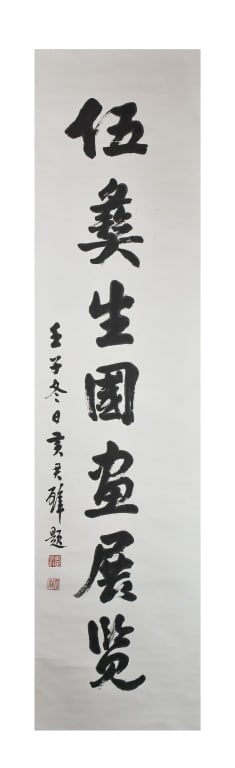 伍彝生國畫展覽
壬子冬日黃君璧題